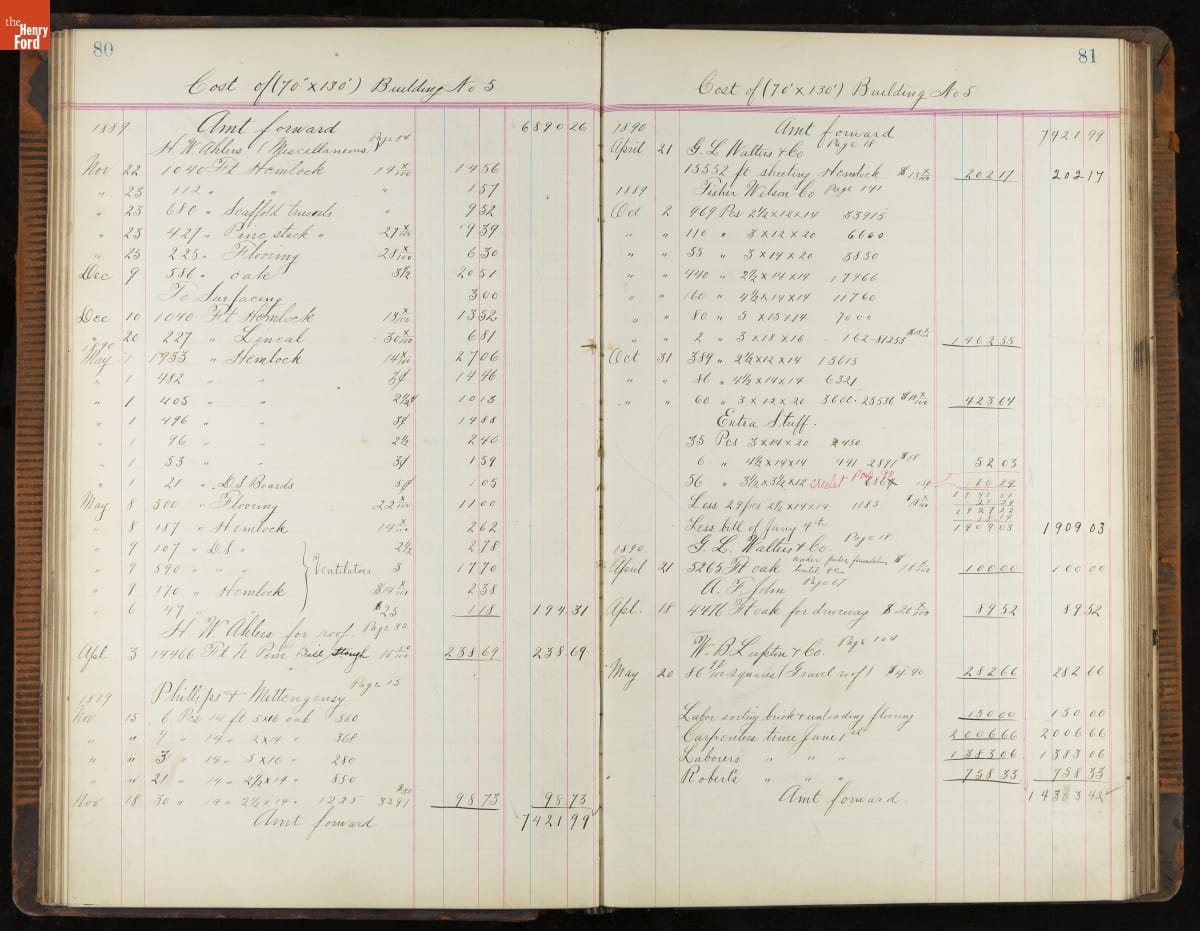 the Henry Ford
80
Cost of (70' x 130') Building No 5
1889 Amt forward 6890 26
H. W. Ahlers (Miscellaneous) Page 84
Nov 22 1040 Ft Hemlock 14 x/100 14 56
" 23 112 " " " 1 57
" 23 680 " Scaffold trussels " 9 52
" 23 427 " Pine stock " 27 x/100 9 39
" 25 225 " Flooring 28 x/100 6 30
Dec 9 586 " oak 3½ 20 51
To Surfacing 3 00
Dec 10 1040 Ft Hemlock 13 x/100 13 52
" 20 227 " Lineal 30 x/100 6 81
1890
May 1 1933 " Hemlock 14 x/100 27 06
" 1 482 " " 3¢ 14 46
" 1 405 " " 2½¢ 10 13
" 1 496 " " 3¢ 14 88
" 1 96 " " 2½ 2 40
" 1 53 " " 3¢ 1 59
" 1 21 " D.S Boards 5¢ 1 05
May 8 500 " Flooring 22 x/100 11 00
" 8 187 " Hemlock 14 x/100 2 62
" 9 107 " D.S " 2½ 2 78
" 9 590 " " " Ventilators 3 17 70
" 9 170 " Hemlock $14 x/100 2 38
" 6 47 " " $25 1 18 194 31
H. W. Ahlers for roof. Page 32
Apl 3 14466 Ft N. Pine 16 50/100 238 69 238 69
Page 15
1889 Phillips & Mettengensy
Nov 15 6 Pcs 14 ft 5x16 oak 560
" " 9 " 14 " 2x14 " 368
" " 3 " 14 " 5x16 " 280
" " 21 " 14 " 2½x14 " 850
Nov 18 30 " 14 " 2½x14 " 1225 3291 $30 98 73 98 73
Amt forward 7421 99
81
Cost of (70' x 130') Building No 5
1890 Amt forward 7421 99
April 21 G. L. Walters & Co Page 18
15552 ft sheeting Hemlock $13 x/100 202 17 202 17
1889 Fisher Wilson Co Page 141
Oct 2 969 Pcs 2½x12x14 33915
" " 110 " 3x12x20 6600
" " 55 " 3x14x20 3850
" " 440 " 2½x14x14 17966
" " 160 " 4½x14x14 11760
" " 80 " 5x15x14 7000
" " 2 " 3x18x16 162 81253 $18 x/100 1462 55
Oct 31 389 " 2½x12x14 13615
" " 86 " 4½x14x14 6321
" " 60 " 3x12x20 3600 23536 $18 x/100 423 64
Extra Stuff.
35 Pcs 3x14x20 2450
6 " 4½x14x14 441 2891 $18 52 03
56 " 3½x3½x12 credit Page 90 686 15¢ 10 29
1948 51
Less 29 pcs 2½x14x14 1183 $18 x/100 21 29
1927 22
Less bill of Jany 4th 18 19
1909 03 1909 03
1890 G. L. Walters & Co. Page 18
April 21 5265 Ft oak under piles, foundation $18 x/100 100 00 100 00
A. F. John Page 67
Apl. 18 4476 Ft oak for driveway $20 x/100 89 52 89 52
W. B. Lupton & Co. Page 104
May 20 86 squares (Gravel roof) $4.40 282 66 282 66
Labor sorting brick & unloading flooring 150 00 150 00
Carpenters time June 1st 2006 66 2006 66
Laborers " " " 1383 06 1383 06
Roberts " " " 758 33 758 33
Amt forward. 14303 42